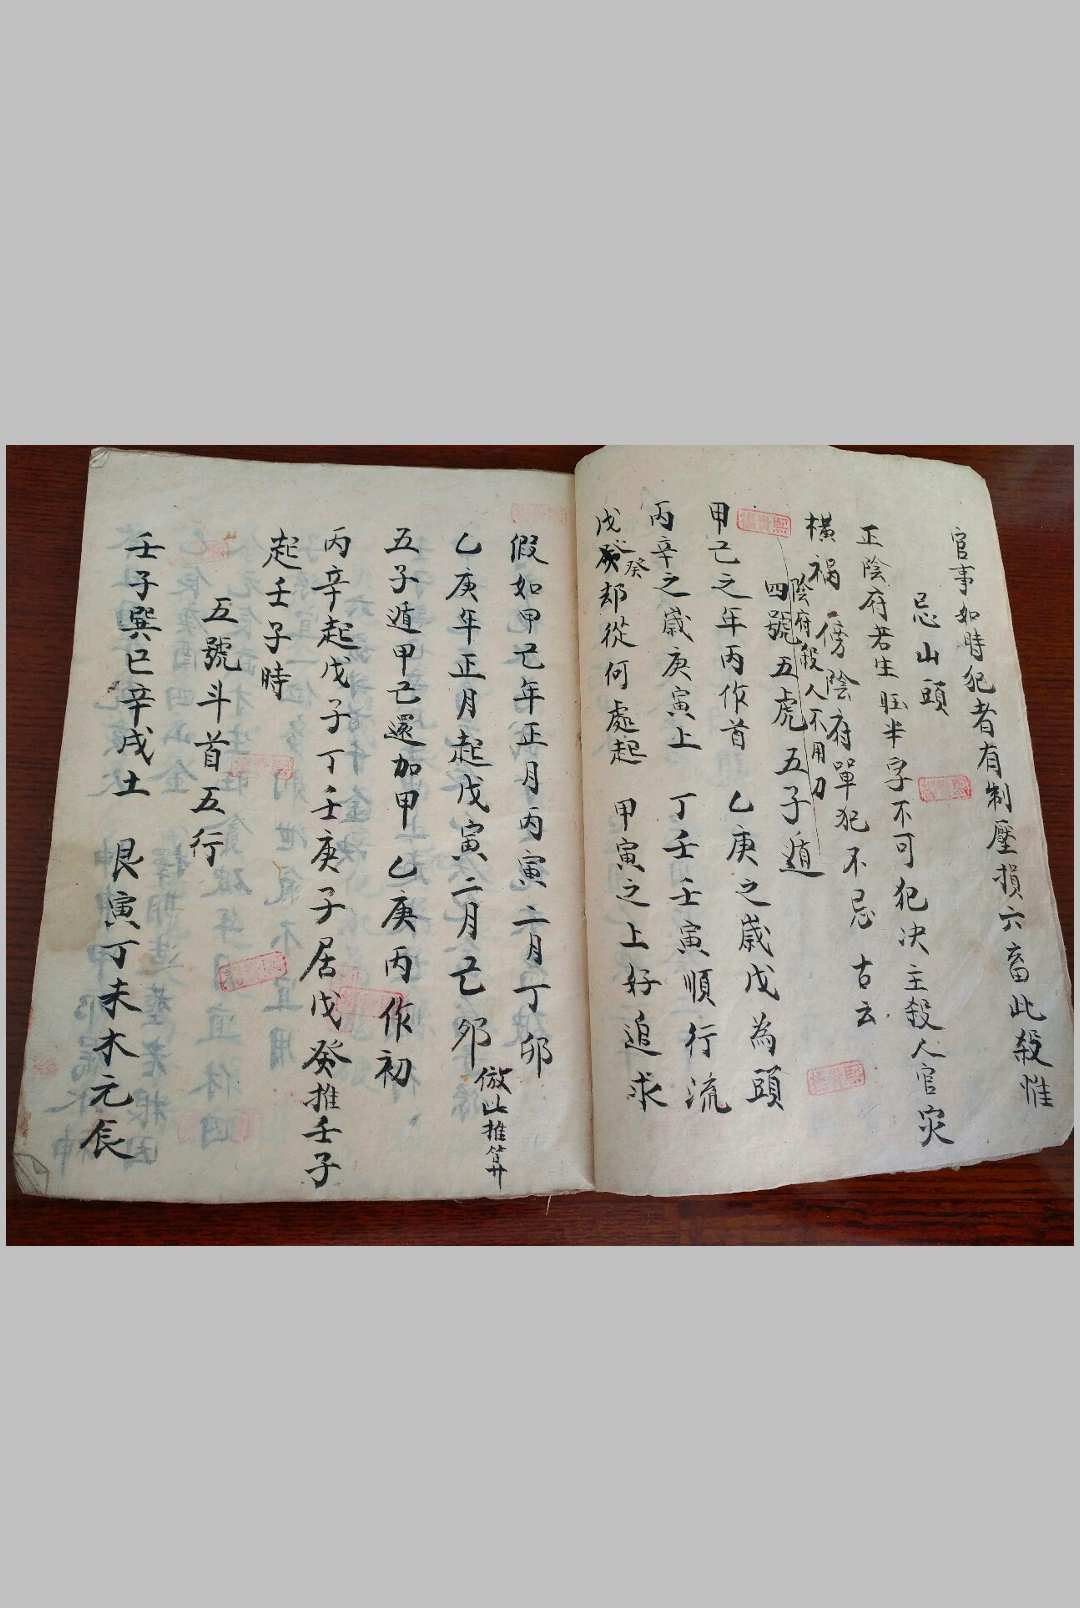 官事如時犯者有制壓損六畜此殺惟
忌山頭
正陰府若生旺半字不可犯決主殺人官灾
橫祸 傍陰府單犯不忌 古云
陰府殺人不用刀
四號五虎五子遁
甲己之年丙作首 乙庚之歲戊為頭
丙辛之歲庚寅上 丁壬壬寅順行流
戊癸却從何處起 甲寅之上好追求
假如甲己年正月丙寅二月丁卯
乙庚年正月起戊寅二月己卯 倣此推算
五子遁甲己還加甲 乙庚丙作初
丙辛起戊子丁壬庚子居戊癸推壬子
起壬子時
五號斗首五行
壬子巽巳辛戌土 艮寅丁未木元辰